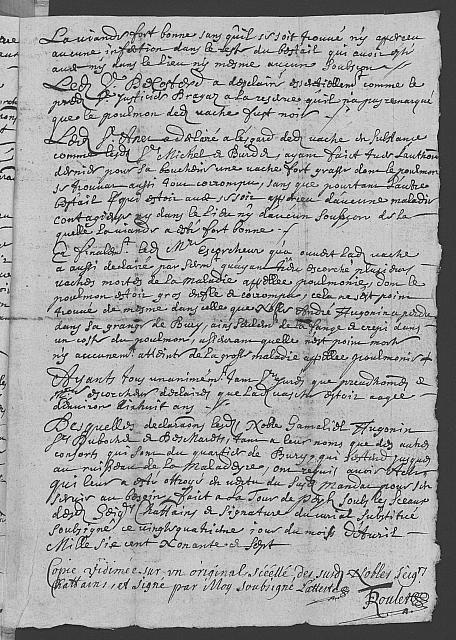 La viande fort bonne sans quil s'y soit trouvé n'y apperceu
aucune infection dans le reste du bestail qui avoit esté
avec n'y dans le lieu n'y mesme aucun soubçon
Led. Sr a déclairé essentiellem. comme le
pred. Sr Justicier à la reserve quil n'a pas remarqué
que le poulmon de lad. vache fust noir
Led. Sr a déclaré à lesgard de lad. vache de substance
comme led. Sr Michel de ayant faict tuer lauthon
dernier pour sa boucherie une vache fort grasse dont le poulmon
se trouva aussi tout corrompu, sans que pourtant l'autre
bestail qui estoit avec se soit apperceu d'aucune maladie
contagieuse n'y dans le lieu n'y d'aucun soubçon de la
quelle la viande a esté fort bonne
Et finalem.t led. Mre Escorcheur qui a ouvert lad. vache
a aussi declairé par serm. quayant escorché plusieurs
vaches mortes de la maladie appellée poulmonie, dont le
poulmon estoit gros enflé & corrompu, cela ne s'est point
trouvé de mesme dans celle que Noble André Hugonin a perdue
dans sa grange de Burg, ains de la dans
un costé du poulmon, asseurant quelle n'est point morte
n'y aucunem.t atteinte de la grosse maladie appellée poulmonie
Ayants tous unanimém.t tant Sgrs jurés que preudhommes &
escorcheur declairé que lad. vache estoit aagée
denviron dixhuit ans
Desquelles declaraons lesd. Noble Gamaliel Hugonin
Srs Dubochet & Desmarets, tant à leur noms que des autres
consorts qui sont du quartier de Burg qui s'estend jusques
au ruisseau de la Maladeyre, ont requis avoir
qui leur a esté ottroyé en vertu du susd. Mandat pour s'en
servir au besoin. Faict à la Tour de Peyl soubs les sceaux
desd. Seigrs Chastelains & signature du curial substitué
soubsigné ce vingtquatriesme jour du mois d'Avril
Mille six cent nonante & sept
Copie vidimée sur un original scéellé des susd. Nobles Seigrs
Chastelains, et signé par moy soubsigné l'atteste
Roulet